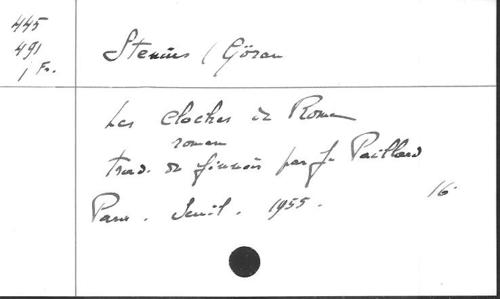 445
491
1 Fr.
Stenius / Göran
Les cloches de Rome
roman
trad. de finnois par J. Paillard
Paris. Seuil. 1955. 16°